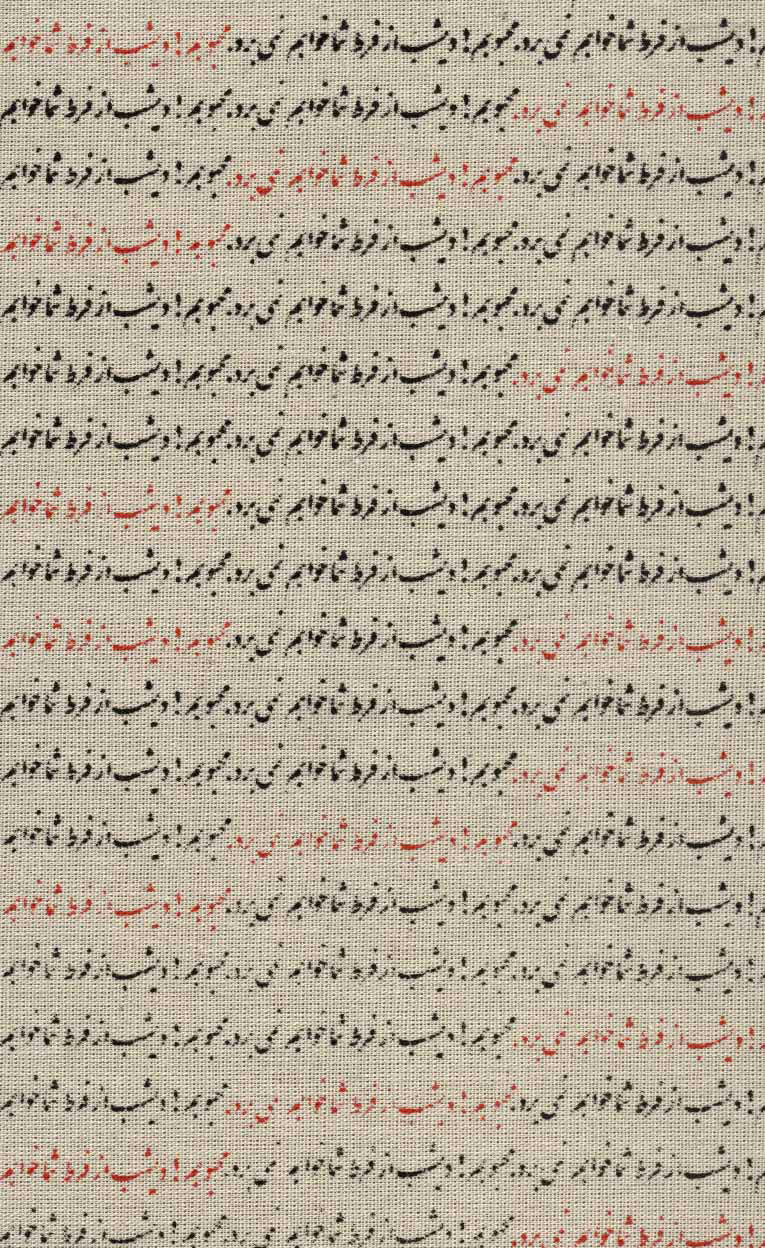 م! دیشب از فرط شما خوابم نمی برد. محبوبم! دیشب از فرط شما خوابم نمی برد. محبوبم! دیشب از فرط شما خوابم
م! دیشب از فرط شما خوابم نمی برد. محبوبم! دیشب از فرط شما خوابم نمی برد. محبوبم! دیشب از فرط شما خوابم
م! دیشب از فرط شما خوابم نمی برد. محبوبم! دیشب از فرط شما خوابم نمی برد. محبوبم! دیشب از فرط شما خوابم
م! دیشب از فرط شما خوابم نمی برد. محبوبم! دیشب از فرط شما خوابم نمی برد. محبوبم! دیشب از فرط شما خوابم
م! دیشب از فرط شما خوابم نمی برد. محبوبم! دیشب از فرط شما خوابم نمی برد. محبوبم! دیشب از فرط شما خوابم
م! دیشب از فرط شما خوابم نمی برد. محبوبم! دیشب از فرط شما خوابم نمی برد. محبوبم! دیشب از فرط شما خوابم
م! دیشب از فرط شما خوابم نمی برد. محبوبم! دیشب از فرط شما خوابم نمی برد. محبوبم! دیشب از فرط شما خوابم
م! دیشب از فرط شما خوابم نمی برد. محبوبم! دیشب از فرط شما خوابم نمی برد. محبوبم! دیشب از فرط شما خوابم
م! دیشب از فرط شما خوابم نمی برد. محبوبم! دیشب از فرط شما خوابم نمی برد. محبوبم! دیشب از فرط شما خوابم
م! دیشب از فرط شما خوابم نمی برد. محبوبم! دیشب از فرط شما خوابم نمی برد. محبوبم! دیشب از فرط شما خوابم
م! دیشب از فرط شما خوابم نمی برد. محبوبم! دیشب از فرط شما خوابم نمی برد. محبوبم! دیشب از فرط شما خوابم
م! دیشب از فرط شما خوابم نمی برد. محبوبم! دیشب از فرط شما خوابم نمی برد. محبوبم! دیشب از فرط شما خوابم
م! دیشب از فرط شما خوابم نمی برد. محبوبم! دیشب از فرط شما خوابم نمی برد. محبوبم! دیشب از فرط شما خوابم
م! دیشب از فرط شما خوابم نمی برد. محبوبم! دیشب از فرط شما خوابم نمی برد. محبوبم! دیشب از فرط شما خوابم
م! دیشب از فرط شما خوابم نمی برد. محبوبم! دیشب از فرط شما خوابم نمی برد. محبوبم! دیشب از فرط شما خوابم
م! دیشب از فرط شما خوابم نمی برد. محبوبم! دیشب از فرط شما خوابم نمی برد. محبوبم! دیشب از فرط شما خوابم
م! دیشب از فرط شما خوابم نمی برد. محبوبم! دیشب از فرط شما خوابم نمی برد. محبوبم! دیشب از فرط شما خوابم
م! دیشب از فرط شما خوابم نمی برد. محبوبم! دیشب از فرط شما خوابم نمی برد. محبوبم! دیشب از فرط شما خوابم
م! دیشب از فرط شما خوابم نمی برد. محبوبم! دیشب از فرط شما خوابم نمی برد. محبوبم! دیشب از فرط شما خوابم